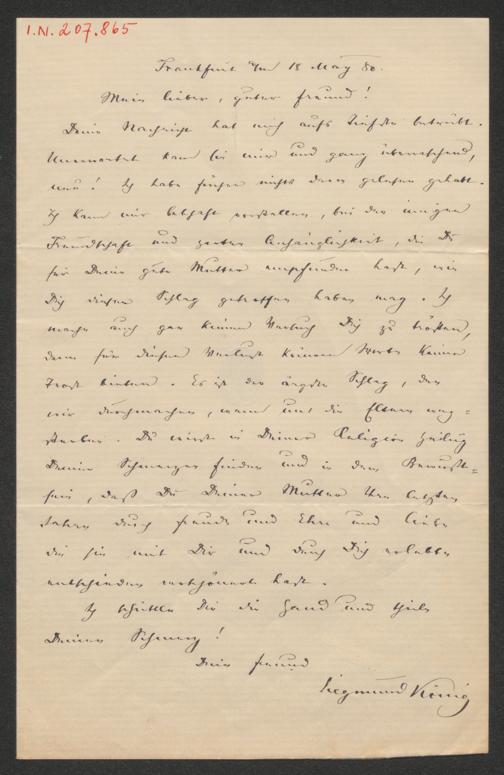 I.N. 207.865
Frankfurt a/M 18 May 80.
Mein lieber, guter Freund!
Deine Nachricht hat mich aufs Tiefste betrübt.
Unerwartet kam sie mir und ganz überraschend,
neu! Ich habe früher nichts davon gelesen gehabt.
Ich kann mir lebhaft vorstellen, bei der innigen
Freundschaft und zarten Anhänglichkeit, die Du
für Deine gute Mutter empfunden hast, wie
Dich dieser Schlag getroffen haben mag. Ich
mache auch gar keinen Versuch Dich zu trösten,
denn für diesen Verlust können Worte keinen
Trost bieten. Es ist der ärgste Schlag, den
wir durchmachen, wenn uns die Eltern weg=
sterben. Du wirst in Deiner Religion Heilung
Deiner Schmerzen finden und in dem Bewußt=
sein, daß Du Deiner Mutter ihre letzten
Jahre durch Freude und Ehre und Liebe
die sie mit Dir und durch Dich erlebte
entschieden verschönert hast.
Ich schüttle Dir die Hand und theile
Deinen Schmerz!
Dein Freund
Siegmund König